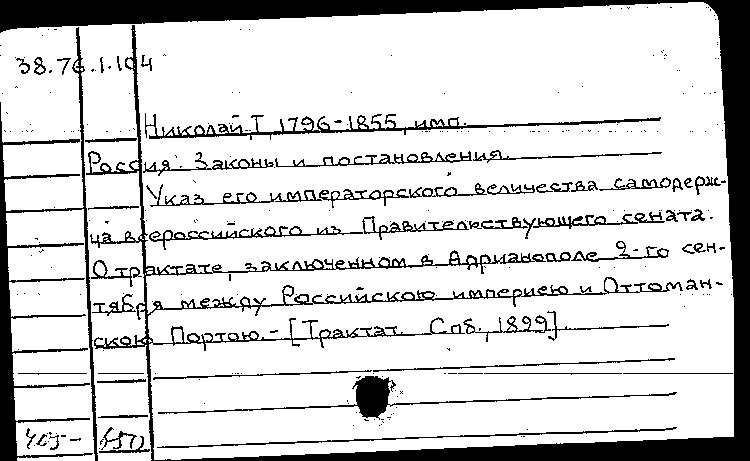 38.76.1.104
Николай I, 1796-1855, имп.
Россия. Законы и постановления.
Указ его императорского величества самодерж-
ца всероссийского из Правительствующего сената.
О трактате, заключенном в Адрианополе 2-го сен-
тября между Российскою империею и Оттоман-
скою Портою. - [Трактат. Спб., 1899].